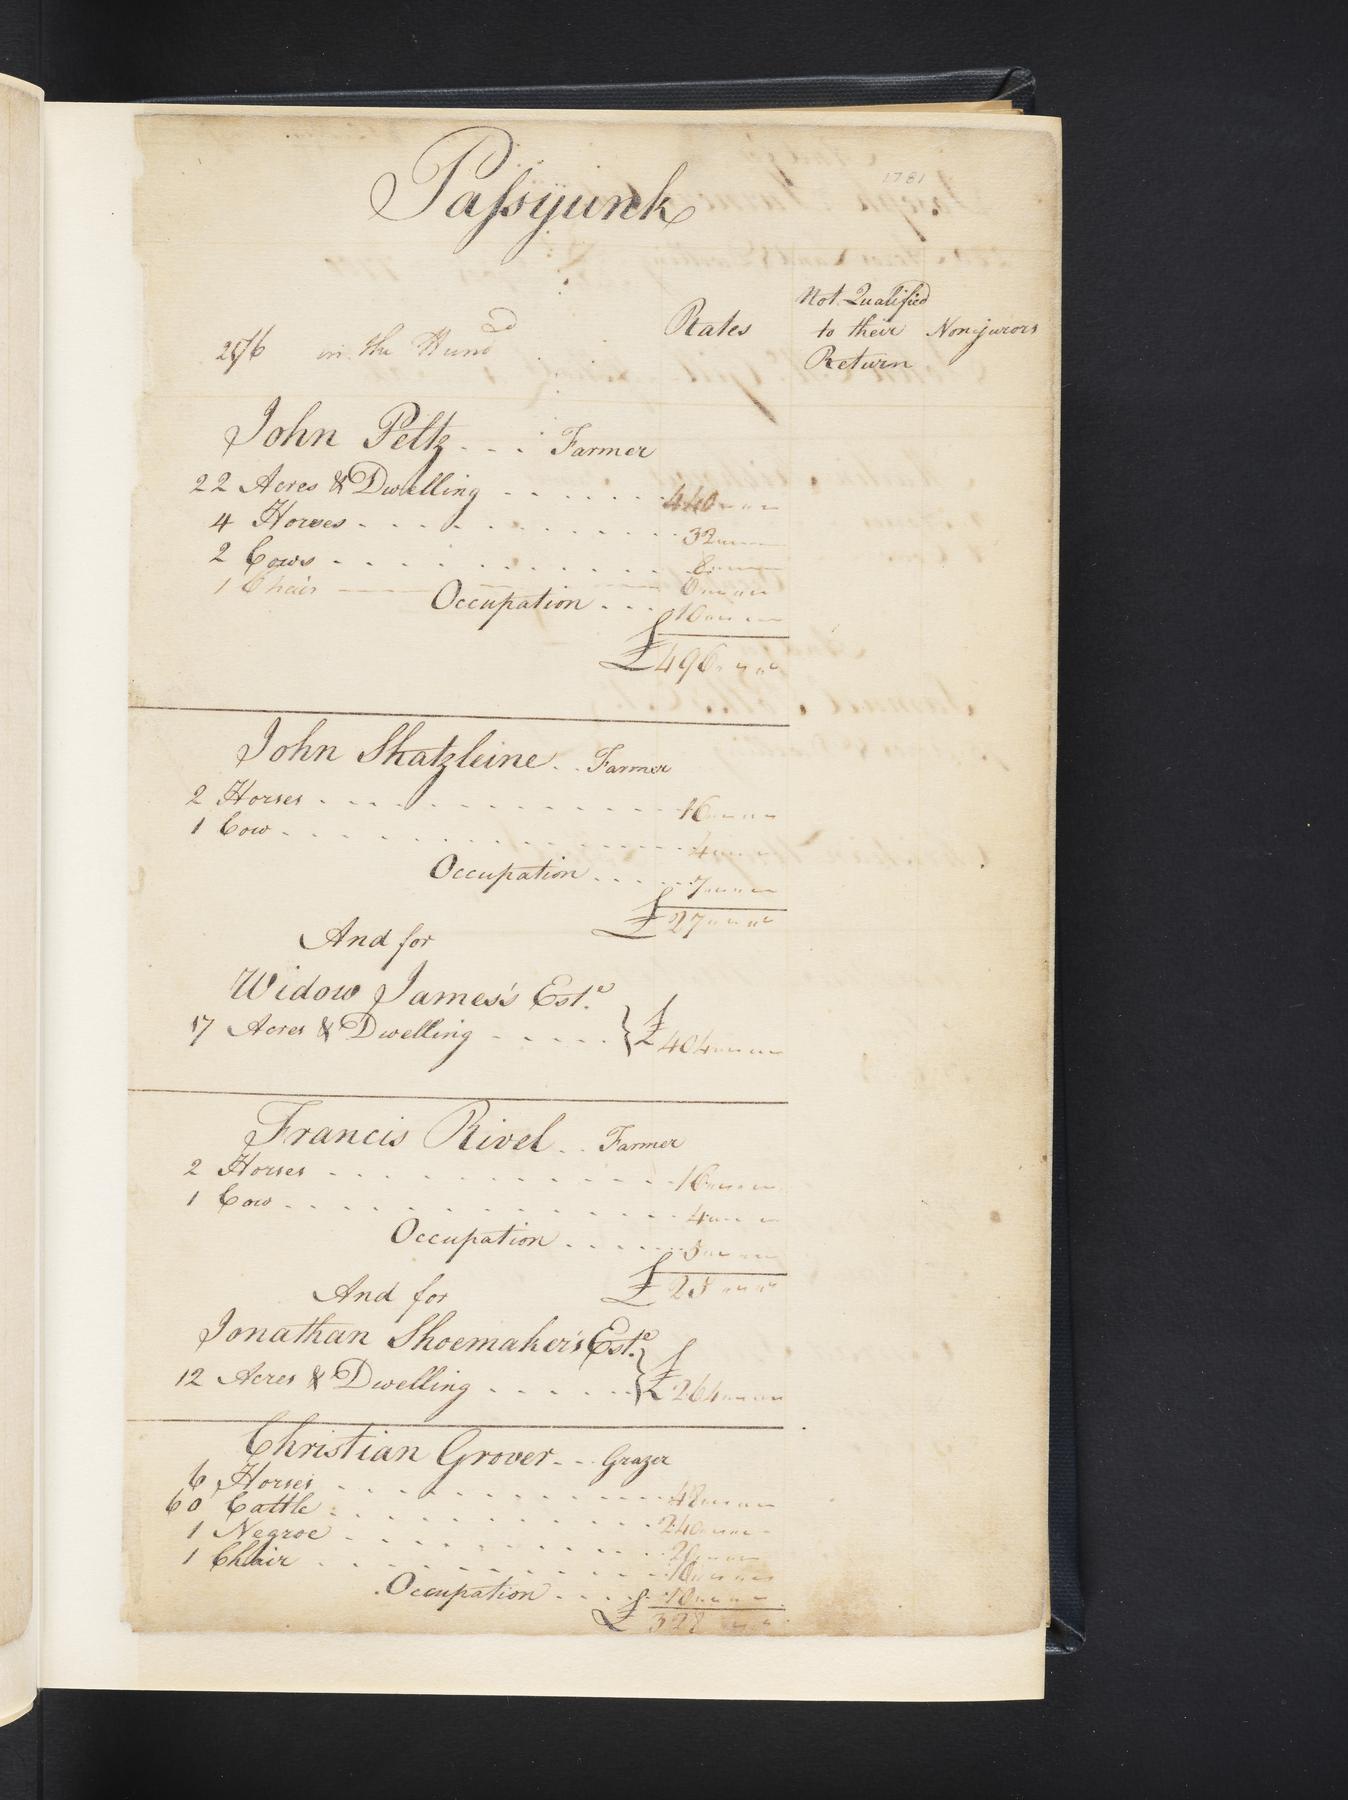 1781
Passyunk
Rates
Not Qualified
to their
Return
Nonjurors
in the Hund.d
John Peltz - - - Farmer
22 Acres & Dwelling - - - - - - 440 " " "
4 Horses - - - - - - - - - - 32 " " "
2 Cows - - - - - - - - - - 8 " " "
1 Chair 6 " " "
Occupation - - - 10 " " "
£ 496 " " "
John Shatzleine - - Farmer
2 Horses - - - - - - - - - - 16 " " "
1 Cow - - - - - - - - - - 4 " " "
Occupation - - - - 7 " " "
£ 27 " " "
And for
Widow James's Est.e
17 Acres & Dwelling - - - - - } £ 404 " " "
Francis Rivel - - Farmer
2 Horses - - - - - - - - - - 16 " " "
1 Cow - - - - - - - - - - 4 " " "
Occupation - - - - 5 " " "
£ 25 " " "
And for
Jonathan Shoemaker's Est.e
12 Acres & Dwelling - - - - - - } £ 264 " " "
Christian Grover - - - Grazer
6 Horses - - - - - - - - - - 48 " " "
60 Cattle - - - - - - - - - - 240 " " "
1 Negroe - - - - - - - - - - 20 " " "
1 Chair - - - - - - - - - - 10 " " "
Occupation - - - - 10 " " "
£ 328 " " "